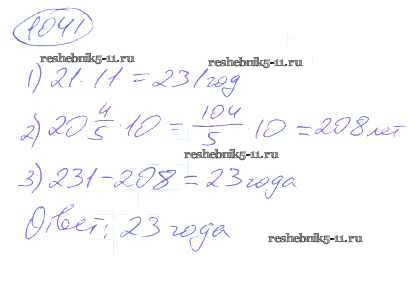 1041
reshebnik5-11.ru
reshebnik5-11.ru
1) 21 · 11 = 231 год
2) 20 4/5 · 10 = 104/5 · 10 = 208 лет
reshebnik5-11.ru
3) 231 - 208 = 23 года
Ответ: 23 года
reshebnik5-11.ru